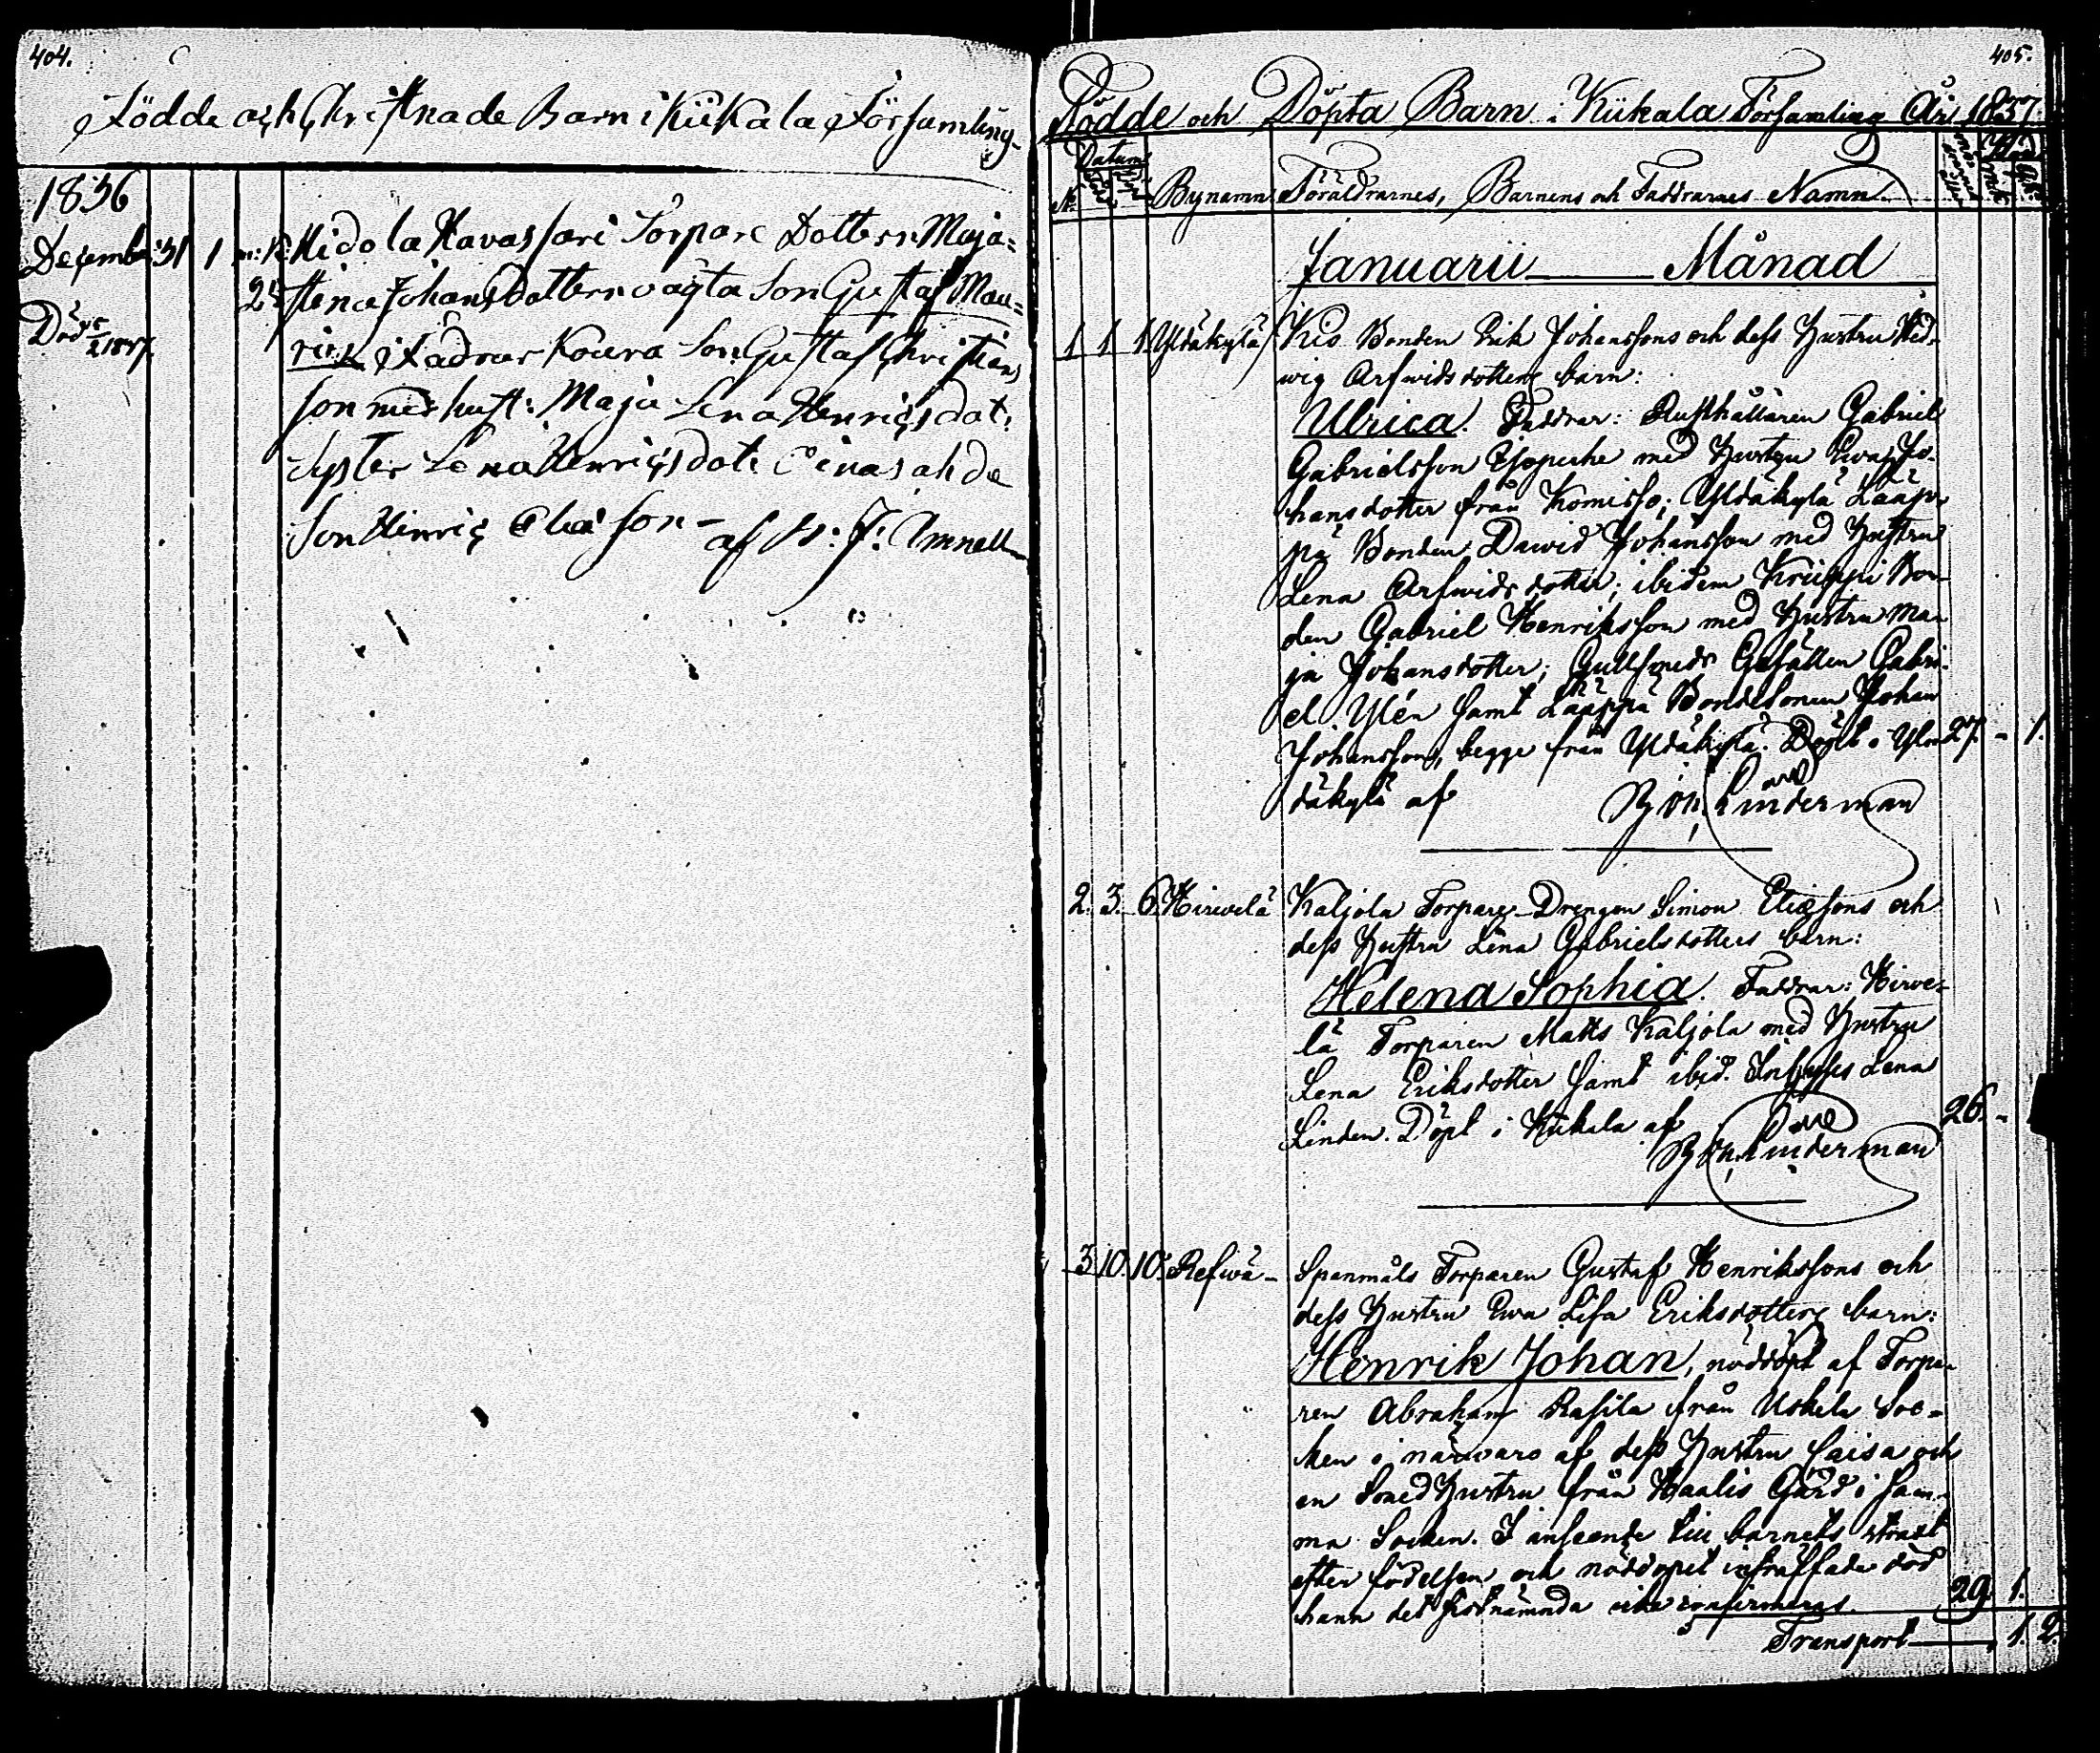 404.
Födde och Christnade Barn i Kiikala Församling
1836
December 31 1 Kidola Kavassari Torpare Dottern Maja
Stina Johans Dotterns oägta Son Gustaf Mau-
Död 5/2 1837.
rits Faddrar Koura Son Gustaf Christians
son med hust: Maja Lena Henrigsdot:
Syster Lena Henrigsdot:
Son Henrig Elia son - af J: Amnell
405.
Födde och Döpta Barn i Kiikala Församling År 1837
Datum
No Bynamn Föräldrarnes, Barnens och Faddrarnes Namn
Januarii Månad
1 1 1. Yldäkylä Bonden Erik Johanssons och dess Hustru Hed-
wig Arfwidsdotters barn:
Ulrica. Faddrar: Rusthållaren Gabriel
Gabrielsson med Hustru Ewa Jo-
hansdotter från Komisso; Yldäkylä Lääp-
pä Bonden Dawid Johansson med Hustru
Lena Arfwidsdotter; ibidem Bon-
den Gabriel Henriksson med Hustru Ma-
ja Johansdotter; Gullsmeds Gesällen Gabri-
el Ylén samt Lääppä Bondesonen Johan
Johansson, begge från Yldäkylä. Döpt i Yl- 27. - 1.
däkylä af Björklinderman
2. 3. 6. Hirwelä Kaljola Torpare-Drengen Simon Eliæsons och
dess Hustru Lena Gabrielsdotters barn:
Helena Sophia. Faddrar: Hirwe-
lä Torparen Matts Kaljola med Hustru
Lena Eriksdotter samt ibid. Inhyses Lena
Linden. Döpt i Kiikala af 26. -
3 10. 10. Refwä- Spanmåls Torparen Gustaf Henrikssons och
dess Hustru Ewa Lisa Eriksdotters barn:
Henrik Johan, nöddöpt af Torpa-
ren Abraham Rasila från Uskela Soc-
ken i närwaro af dess Hustru Caisa och
en Smed Hustru från Haalis Gård i sam-
ma Socken. I anseende till barnets straxt
efter födelsen och nöddopet inträffade död
hann det sistnämnda icke confirmeras. 29. 1.
Transport 1. 2.